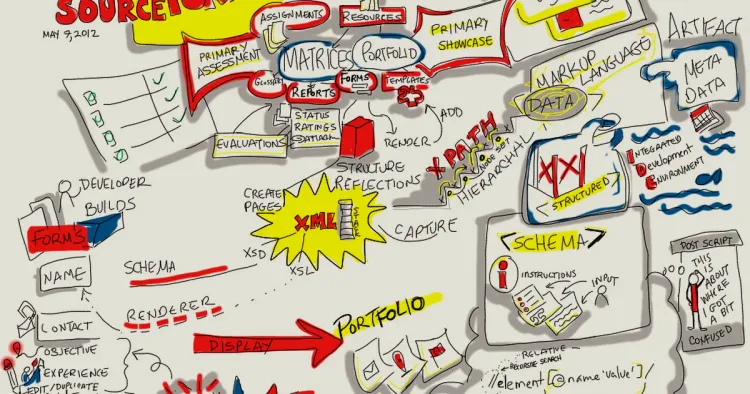 SOURCE
MAY 9, 2012
ASSIGNMENTS
RESOURCES
PRIMARY
ASSESSMENT
MATRICES
PORTFOLIO
PRIMARY
SHOWCASE
GLOSSARY
REPORTS
FORMS
TEMPLATES
EVALUATIONS
STATUS
RATINGS
STRUCTURE
REFLECTIONS
RENDER
ADD
MARKUP
LANGUAGE
DATA
ARTIFACT
META
DATA
XPATH
NODE SET
HIERARCHAL
XX
STRUCTURED
INTEGRATED
DEVELOPMENT
ENVIRONMENT
DEVELOPER
BUILDS
FORMS
NAME
CONTACT
OBJECTIVE
EXPERIENCE
EDIT/DUPLICATE
CREATE
PAGES
XML
CAPTURE
XSD
XSL
SCHEMA
RENDERER
DISPLAY
PORTFOLIO
<SCHEMA>
i
INSTRUCTIONS
INPUT
POST SCRIPT
THIS
IS
ABOUT
WHERE
I GOT
A BIT
CONFUSED
RELATIVE
RECURSIVE SEARCH
//element[@name'value']/